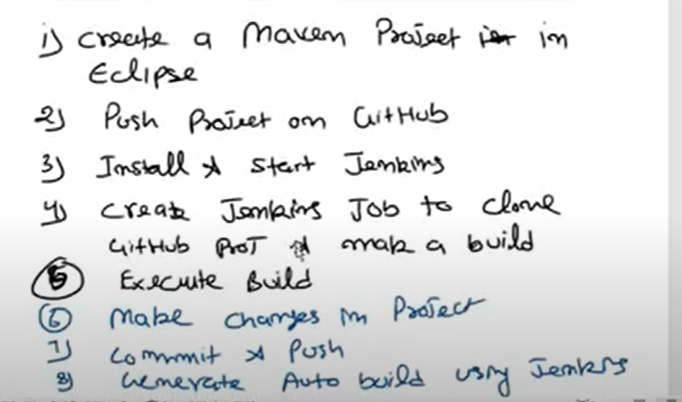 1) Create a Maven Project in
Eclipse
2) Push Project on GitHub
3) Install & Start Jenkins
4) Create Jenkins Job to clone
GitHub Proj & make a build
5 Execute Build
6 Make changes in Project
7) Commit & Push
8) Generate Auto build using Jenkins